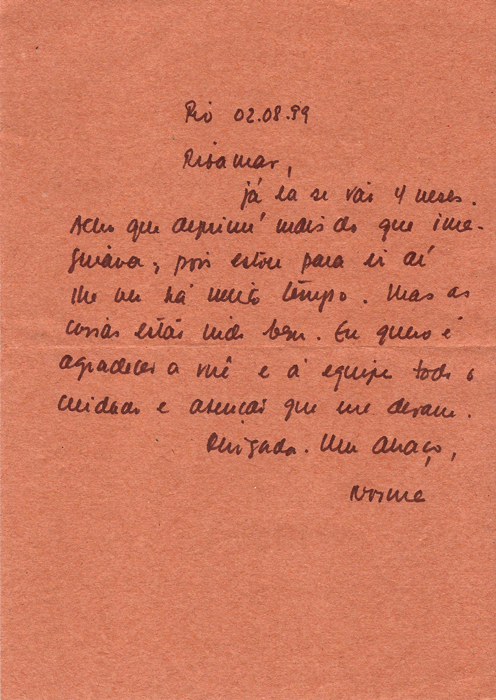 Rio 02.08.99
Ribamar,
já lá se vão 4 meses.
Acho que deprimi mais do que ima-
ginava, pois estou para ir aí
há muito tempo. Mas as
coisas estão indo bem. Eu quero é
agradecer a você e à equipe todo o
cuidado e atenção que me deram.
Obrigada. Um abraço,
Norma